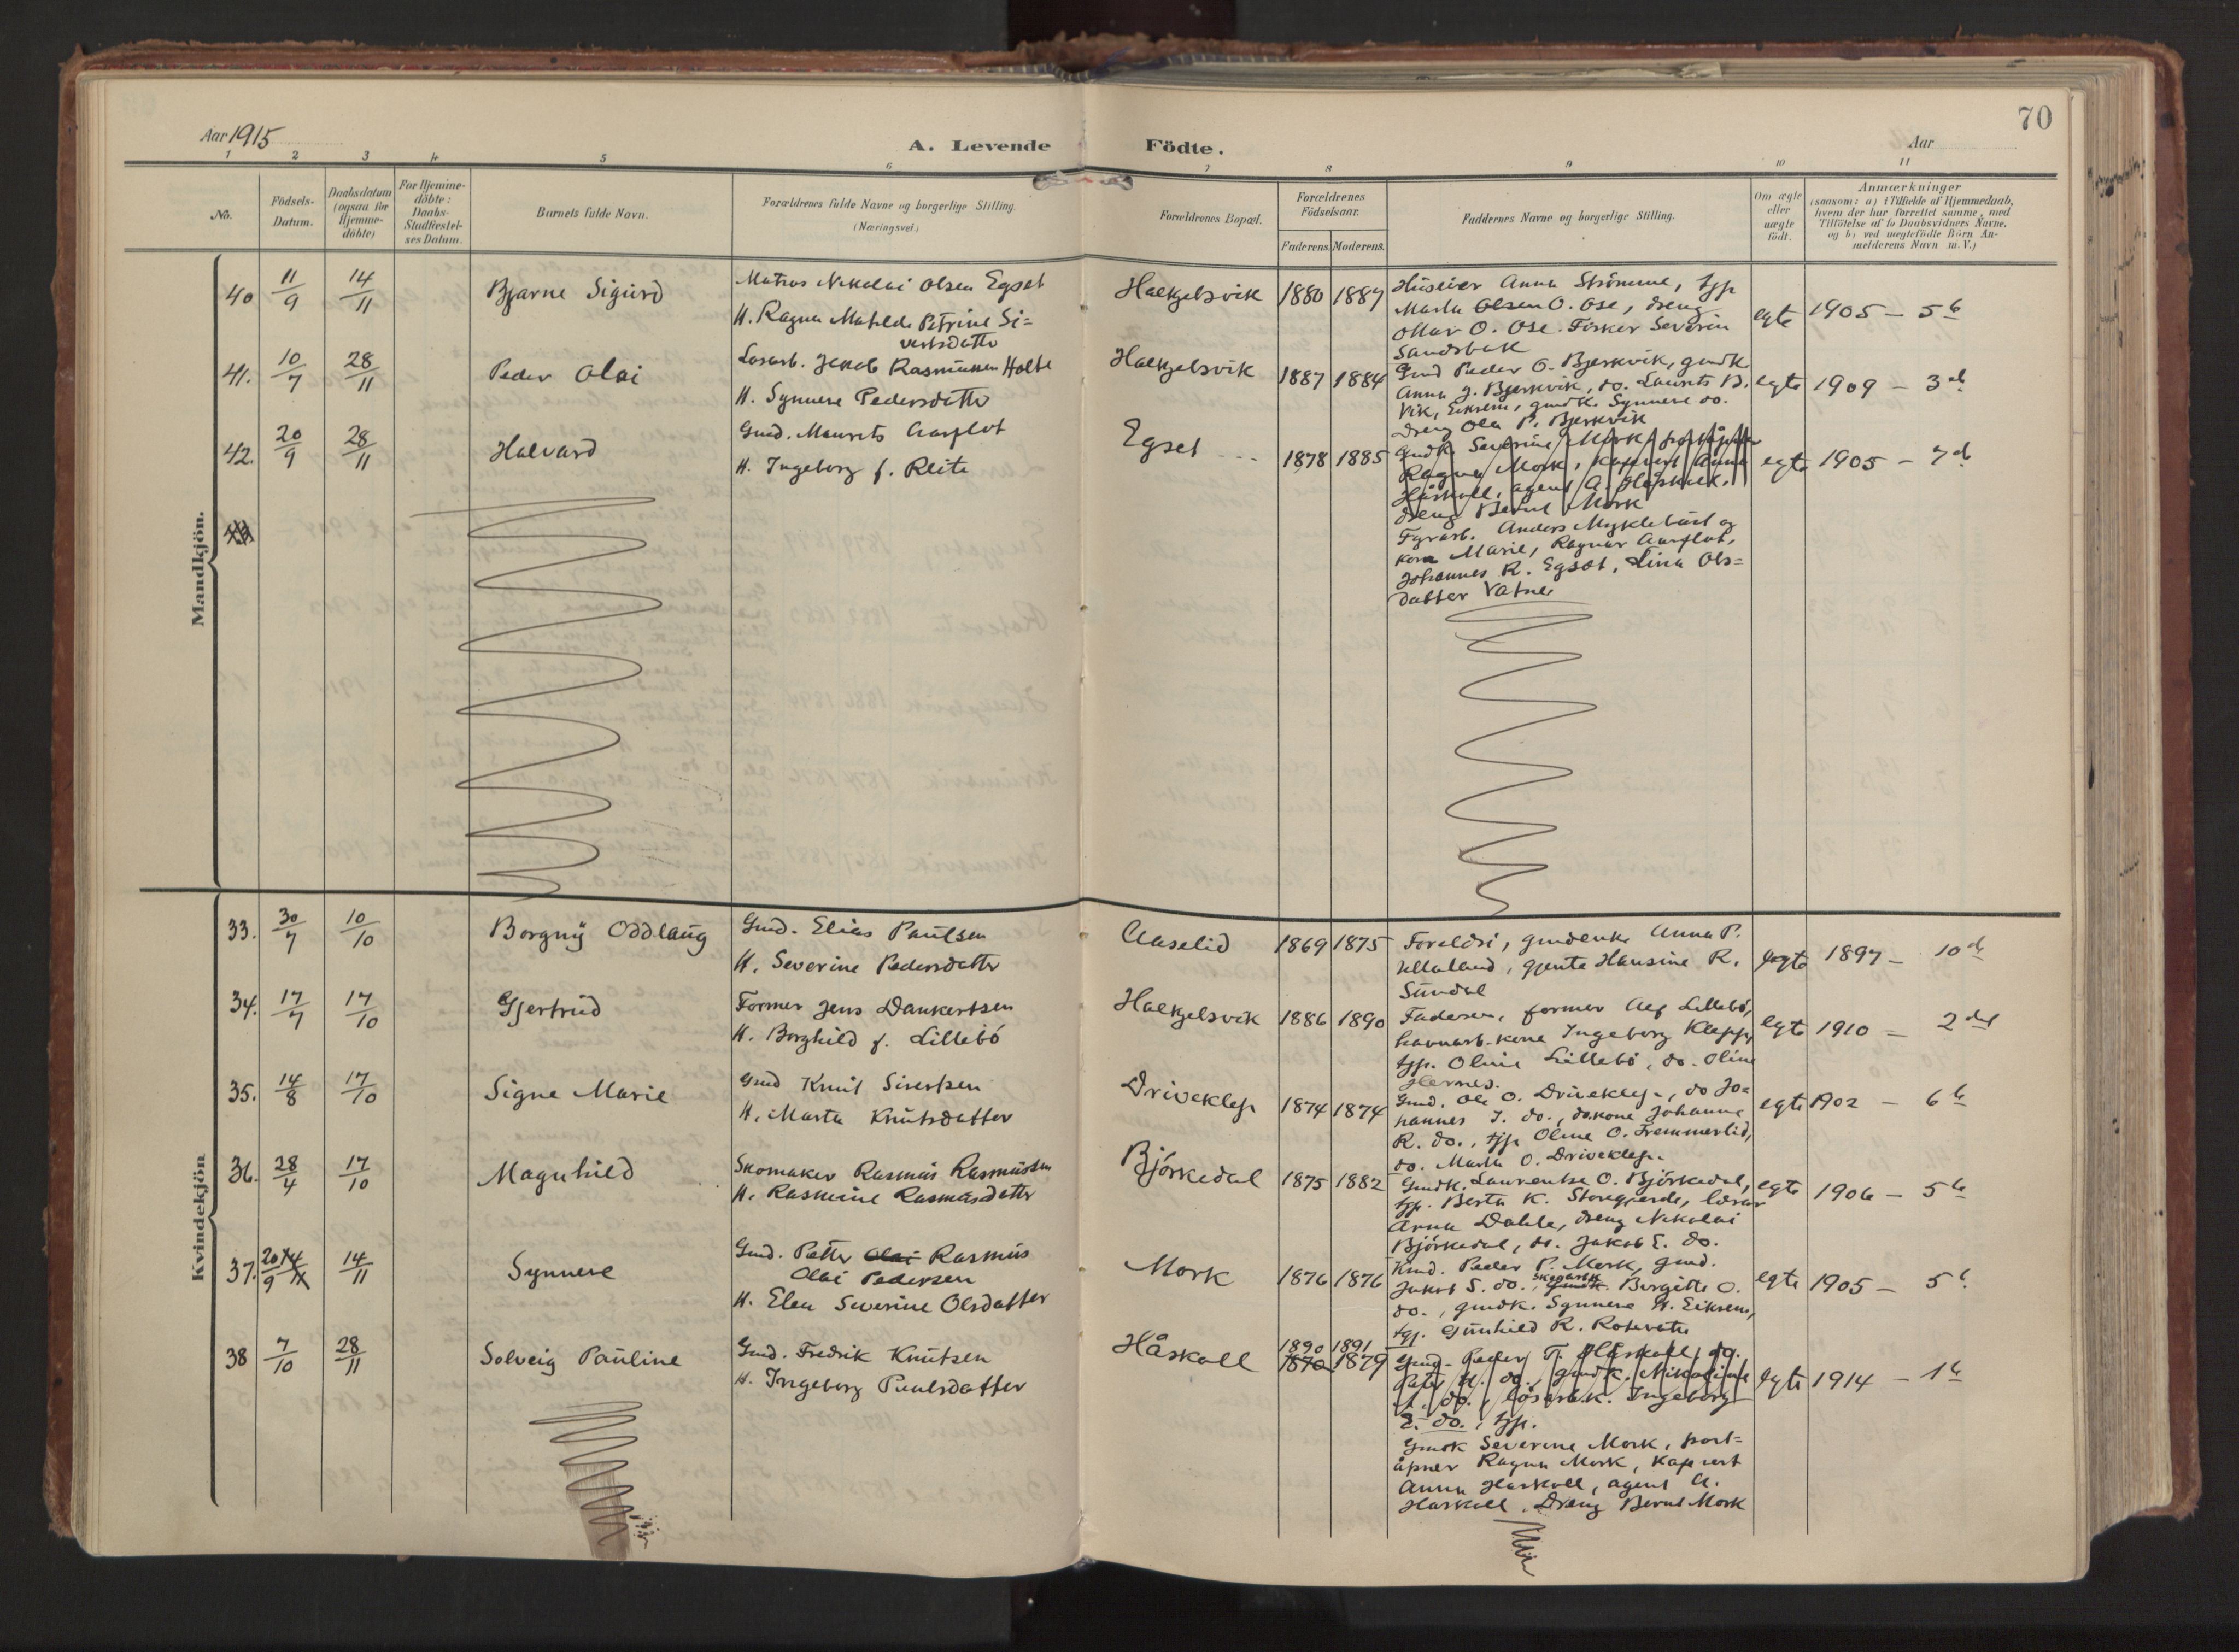 70
Aar 1915
A. Levende Födte.
Aar
1 2 3 4 5 6 7 8 9 10 11
No.
Födsels-
Datum.
Daabsdatum
(ogsaa for
Hjemme-
döbte)
For Hjemme-
döbte:
Daabs-
Stadfæstel-
ses Datum.
Barnets fulde Navn.
Forældrenes fulde Navne og borgerlige Stilling.
(Næringsvei.)
Forældrenes Bopæl.
Forældrenes
Födselsaar.
Faderens. Moderens.
Faddernes Navne og borgerlige Stilling.
Om ægte
eller
uægte
födt.
Anmærkninger
(saasom: a) i Tilfælde af Hjemmedaab,
hvem der har forrettet samme, med
Tilföielse af to Daabsvidners Navne,
og b) ved uægtefödte Börn An-
melderens Navn m. V.)
Mandkjön.
40 11/9 14/11 Bjarne Sigurd
Matros Nikolai Olsen Egset
H. Ragna Matilde Petrine Si=
vertsdatter
Hækjelsvik 1880 1887
Huseier Anna Strömme, tjp
Marta Olsen O. Ose, dreng
Ottar O. Ose. Fisker Severin
Sandsbak
egte 1905 - 5 b
41. 10/7 28/11 Peder Olai
Løsarb. Jakob Rasmussen Holte
H. Synnere Pedersdatter
Hækjelsvik 1887 1884
Gmd Peder O. Bjerkvik, gmdk
Anna J. Bjerkvik, do. Laurits B.
Vik, Eiksem, gmdk. Synnere do.
dreng Ola P. Bjerkvik
egte 1909 - 3 d
42. 20/9 28/11 Halvard
Gmd. Maurits Aarflot
H. Ingeborg f. Reite
Egset 1878 1885
Gmdk Severine Mork, poståpner
Ragna Mork, Kapvert Anna
Håskoll, agent A. Håskoll.
dreng Bernt Mork
Fyrarb. Anders Myklebust og
kona Marie, Ragnar Aarflot,
Johannes R. Egset, Lina Ols=
datter Vatne
egte 1905 - 7 d
Kvindekjön
33. 30/7 10/10 Borgny Oddlaug
Gmd. Elias Paulsen
H. Severine Pedersdatter
Aaselid 1869 1875
Foreldri, gmdenke Anna P.
Ulladland, gjente Hansine R.
Sundal
egte 1897 - 10 d
34. 17/7 17/10 Gjertrud
Former Jens Dankertsen
H. Borghild f. Lillebö
Hækjelsvik 1886 1890
Faderen, former Alf Lillebö,
havnarb. kone Ingeborg Klepp,
tjp. Oline Lillebö, do. Oline
Hernes.
egte 1910 - 2 det
35. 14/8 17/10 Signe Marie
Gmd Knut Sivertsen
H. Marta Knutsdatter
Driveklep 1874 1874
Gmd. Ole O. Driveklep, do Jo=
hannes J. do., do. kone Johanna
R. do., tjp Oline O. Fremmerlid,
do. Marta O. Driveklep.
egte 1902 - 6 b
36. 28/4 17/10 Magnhild
Skomaker Rasmus Rasmussen
H. Rasmine Rasmusdatter
Björkedal 1875 1882
Gmdk. Laurentse O. Björkedal,
tjp. Berta K. Storegjerde, lærer
Arne Dahle, dreng Nikolai
Björkedal, do. Jakob E. do.
egte 1906 - 5 b
37. 20/9 14/11 14/11 Synnere
Gmd. Petter Olai Rasmus
Olai Pedersen
H. Elen Severine Olsdatter
Mork 1876 1876
Kmd. Peder P. Mork, gmd.
Jakob S. do., gmdk. Birgitte O.
do., gmdk. Synnere H. Eiksem,
tjp. Gunhild R. Rotevatn
egte 1905 - 5 b.
38 7/10 28/11 Solveig Pauline
Gmd. Fredrik Knutsen
H. Ingeborg Paulsdatter
Håskoll 1890 1891
1870 1879
Gmd. Peder T. Håskoll, do.
do., gmdk. Nikoline
do., lösarb.k. Ingeborg
E. do., tjp.
Gmdk Severine Mork, post=
åpner Ragna Mork, Kapvert
Anna Haskoll, agent A.
Haskoll, Dreng Bernt Mork
egte 1914 - 1 b